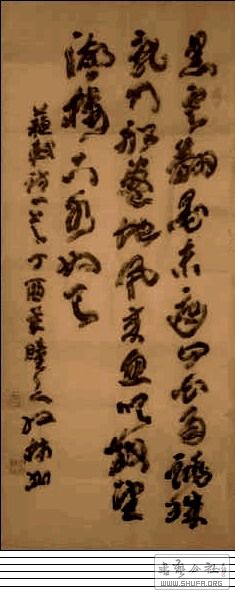 黑雲翻墨未遮山白雨跳珠
亂入船卷地風來忽吹散望
湖樓下水如天
蘇軾詩一首丁酉
WWW.SHUFA.ORG